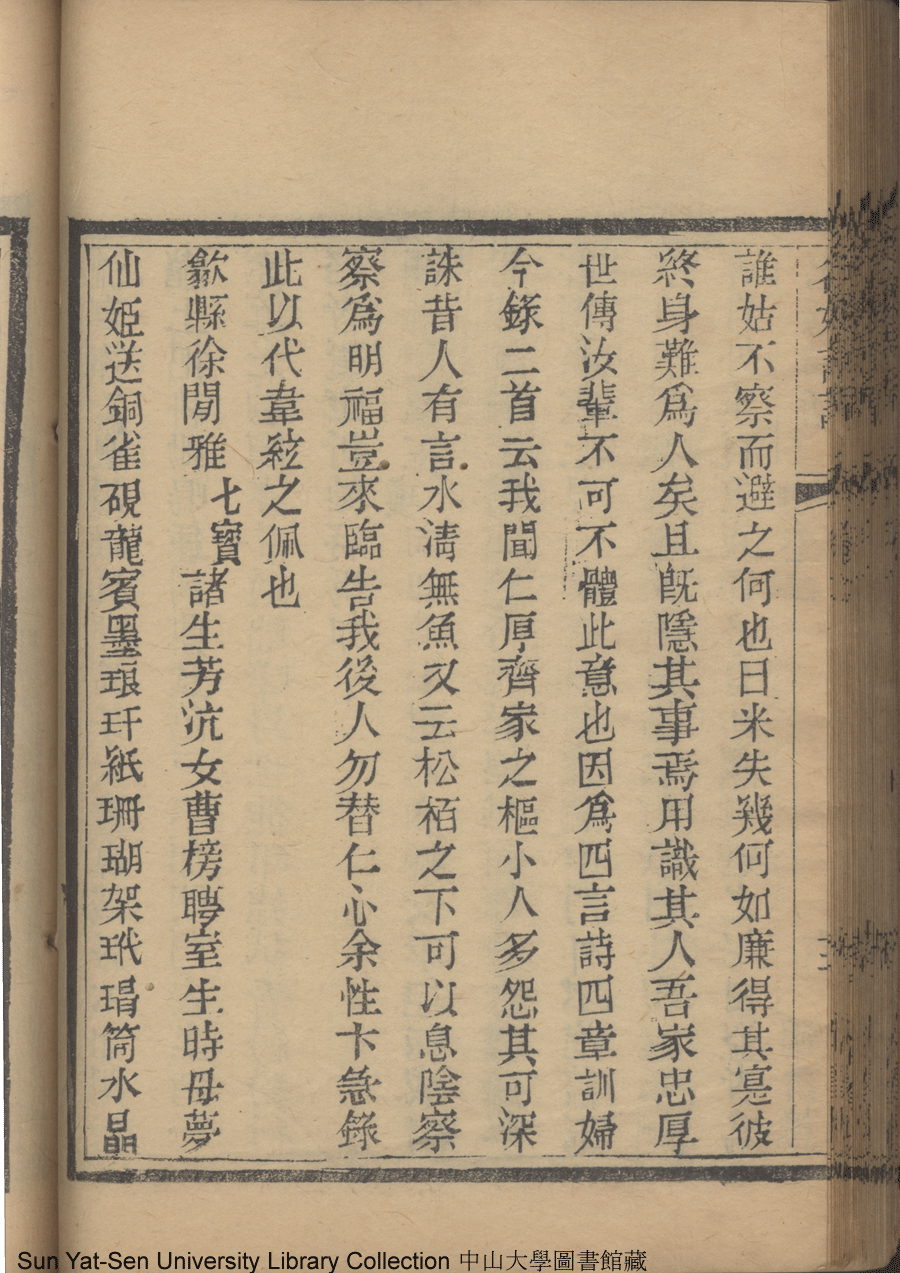 誰姑不察而避之何也曰米失幾何如廉得其寔彼
終身難爲人矣且旣隱其事焉用識其人吾家忠厚
世傳汝輩不可不體此意也因爲四言詩四章訓婦
今錄二首云我聞仁厚齊家之樞小人多怨其可深
誅昔人有言水淸無魚又云松栢之下可以息陰察
察爲明福豈來臨告我後人勿替仁心余性卞急錄
此以代韋絃之佩也
歙縣徐閒雅七寶諸生芳沆女曹榜聘室生時母夢
仙姬送銅雀硯龍賓墨琅玕紙珊瑚架玳瑁筒水晶
Sun Yat-Sen University Library Collection 中山大學圖書館藏